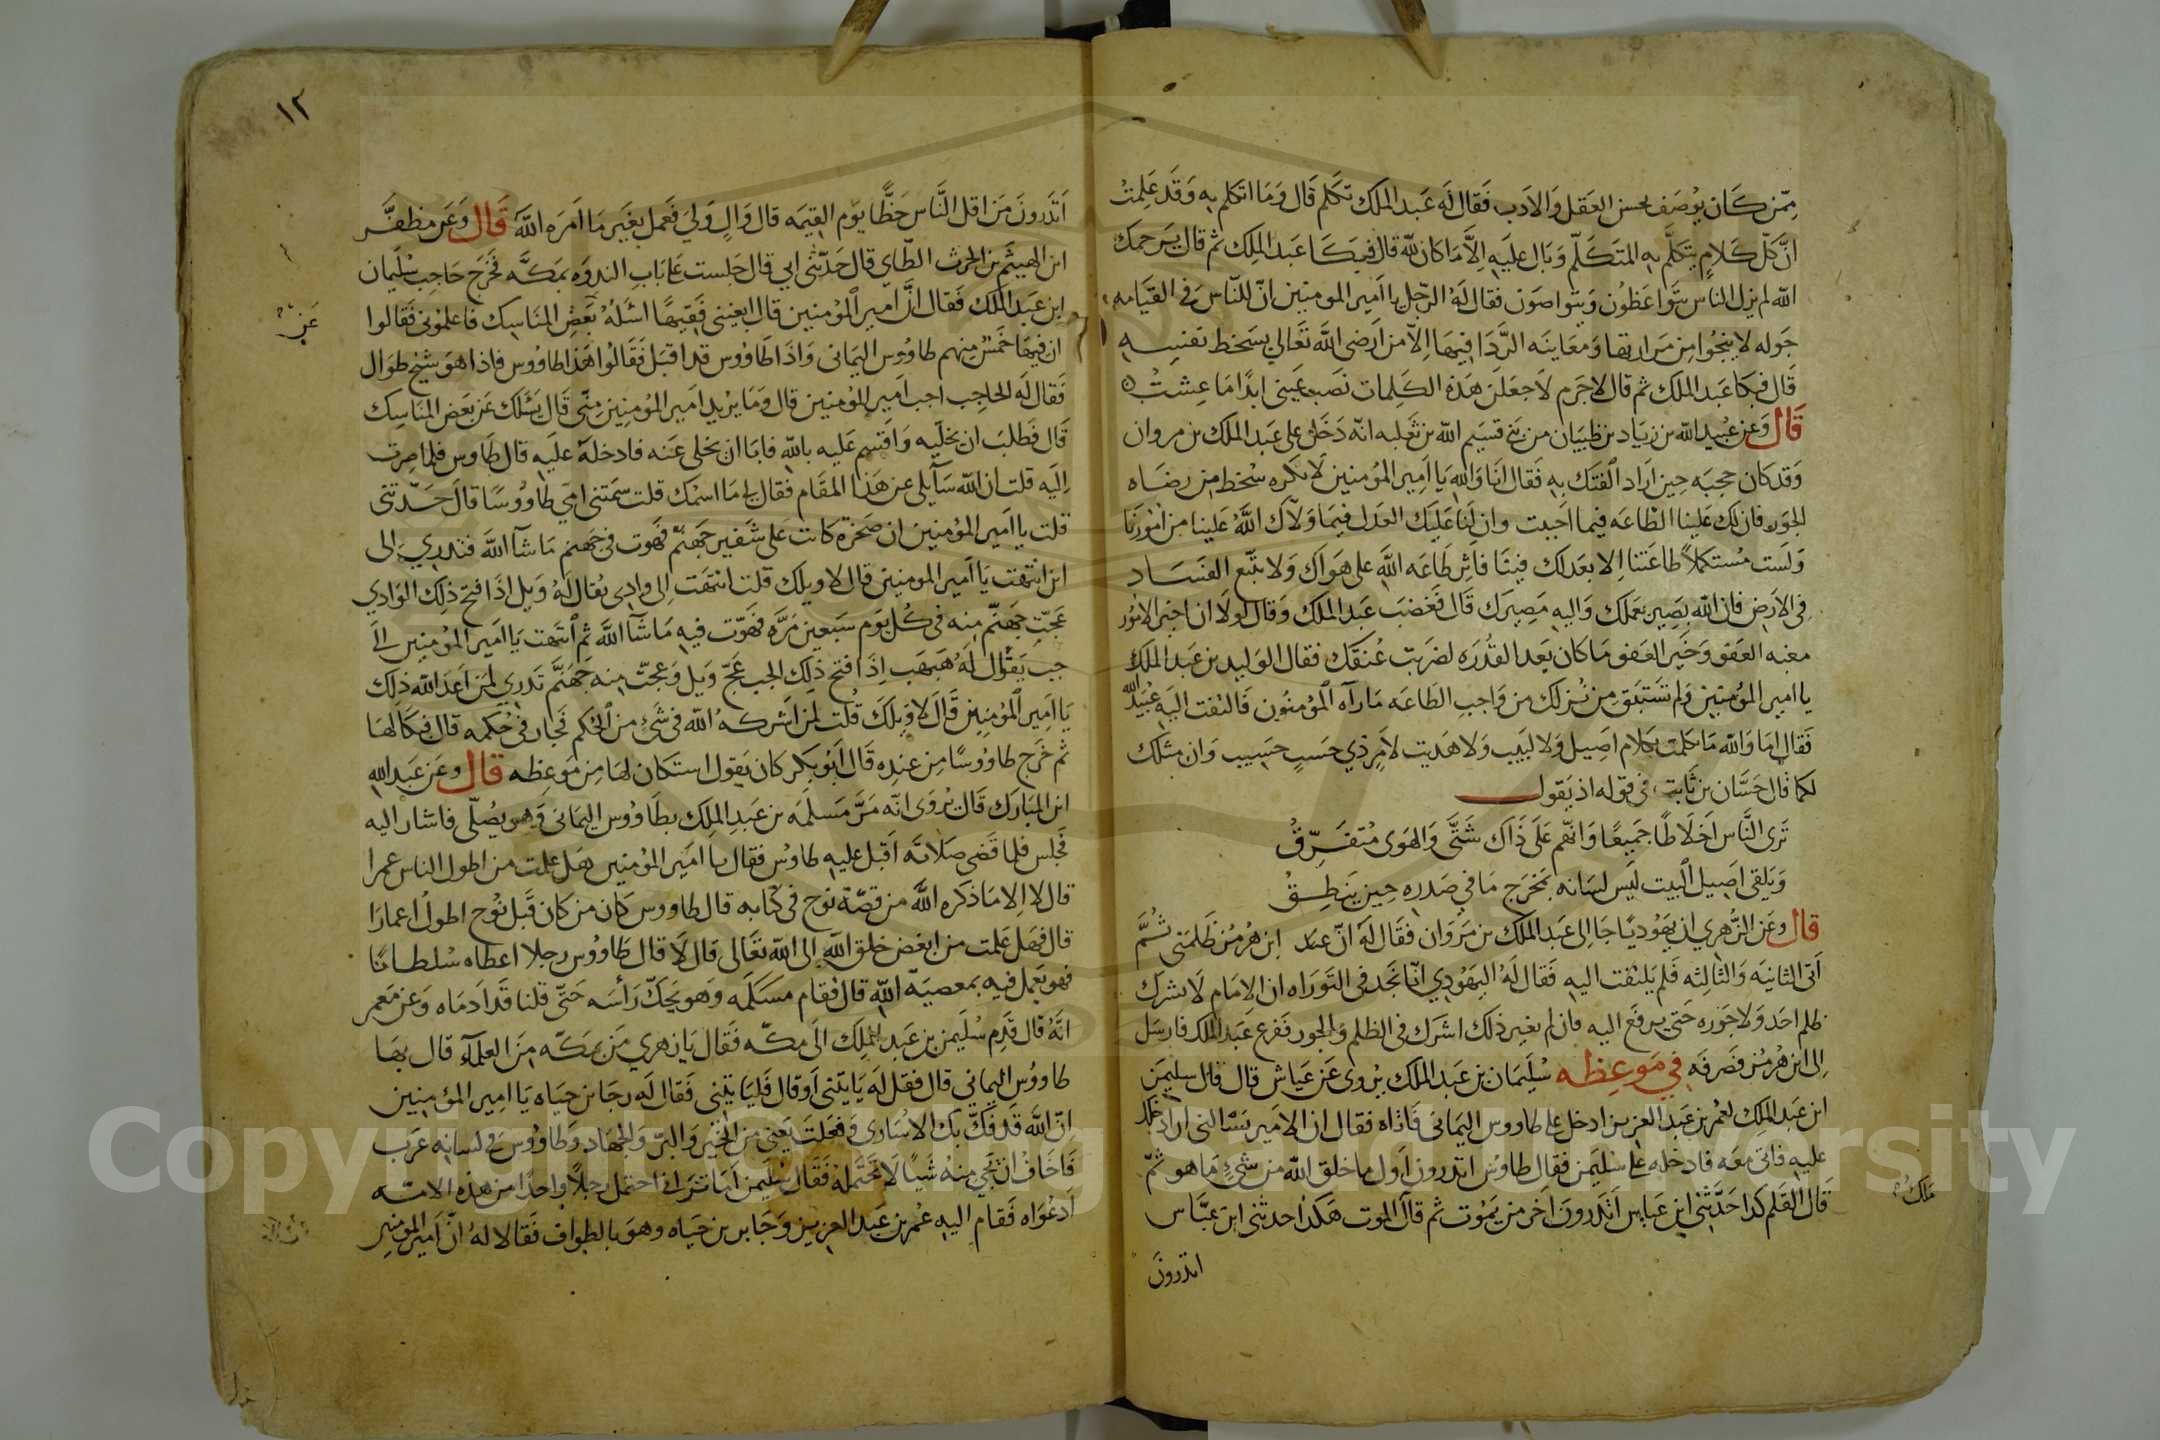 ممن كان يوصف بحسن العقل والادب فقال له عبد الملك تكلم قال وما اتكلم به وقد علمت
ان كل كلام يتكلم به المتكلم وبال عليه الا ما كان لله قال فبكا عبد الملك ثم قال يرحمك
الله لم يزل الناس يتواعظون ويتواصون فقال له الرجل يا امير المومنين ان للناس في القيامه
جوله لا ينجوا من مرارتها ومعاينه الردا فيها الا من ارضى الله تعالى بسخط نفسه
قال فبكا عبد الملك ثم قال لا جرم لاجعلن هذه الكلمات نصب عيني ابدا ما عشت
قال وعن عبيد الله بن زياد بن ظبيان من بني قسيم الله بن ثعلبه انه دخل على عبد الملك بن مروان
وقد كان حجبه حين اراد الفتك به فقال انا والله يا امير المومنين لا نكره سخط من رضاه
الجور فان لك علينا الطاعه فيما احببت وان لنا عليك العدل فيما ولاك الله علينا من امورنا
ولست مستكملا طاعتنا الا بعدلك فينا فاثر طاعه الله على هواك ولا تتبع الفساد
في الارض فان الله بصير بعملك واليه مصيرك قال فغضب عبد الملك وقال لولا ان خير الامور
مغبه العفو وخير العفو ما كان بعد القدره لضربت عنقك فقال الوليد بن عبد الملك
يا امير المومنين ولم تستبق من نزلك من واجب الطاعه ما رآه المومنون فالتفت اليه عبيد الله
فقال اما والله ما تكلمت بكلام اصيل ولا لبيب ولا هديت لامر ذي حسب حسيب وان مثلك
لكما قال حسان بن ثابت في قوله اذ يقول
ترى الناس اخلاطا جميعا وانهم على ذاك شتى والهوى متفرق
ويلقى اصيل البيت ليس لسانه بمخرج ما في صدره حين ينطق
قال وعن الزهري ان يهوديا جا الى عبد الملك بن مروان فقال له ان ابن هرمز ظلمني ثم
اتى الثانيه والثالثه فلم يلتفت اليه فقال له اليهودي انا نجد في التوراه ان الامام لا يشرك
ظلم احد ولا جوره حتى يرفع اليه فان لم يغير ذلك اشرك في الظلم والجور ففزع عبد الملك فارسل
الى ابن هرمز فصرفه في موعظه سليمان بن عبد الملك يروى عن عياش قال قال سليمن
ابن عبد الملك لعمر بن عبد العزيز ادخل علي طاووس اليماني فاتاه فقال ان الامير يسالني ادخلك
عليه فاتى معه فادخله على سليمن فقال طاوس اتدرون اول ما خلق الله من شيء ما هو ثم
قال القلم كذا حدثني ابن عباس اتدرون اخر من يموت ثم قال الموت هكذا حدثني ابن عباس
ملك
اتدرون
١٢
اتدرون من اقل الناس حظا يوم القيمه قال وال ولي فعمل بغير ما امره الله قال وعن مظفر
ابن الهيثم بن الحرث الطاي قال حدثني ابي قال جلست على باب الندوه بمكه فخرج حاجب سليمان
ابن عبد الملك فقال ان امير المومنين قال ابغيني فقيها اسئله بعض المناسك فاعلموني فقالوا
ان فيها خمس منهم طاووس اليماني واذا طاووس قد اقبل فقالوا هذا طاووس فاذا هو شيخ طوال
فقال له الحاجب اجب امير المومنين قال وما يريد امير المومنين مني قال يسئلك عن بعض المناسك
قال فطلب ان يخليه واقسم عليه بالله فابا ان يخلي عنه فادخله عليه قال طاوس فلما صرت
اليه قلت ان الله سآيلي عن هذا المقام فقال لي ما اسمك قلت سمتني امي طاووسا قال حدثني
قلت يا امير المومنين ان صخرة كانت على شفير جهنم فهوت في جهنم ما شآ الله فتدري الى
اين انتهت يا امير المومنين قال لا ويلك قلت انتهت الى وادي يقال له ويل اذا فتح ذلك الوادي
عجت جهنم منه في كل يوم سبعين مره فهوت فيه ما شآ الله ثم انتهت يا امير المومنين الى
جب يقول له هبهب اذا فتح ذلك الجب عج ويل وعجت منه جهنم تدري لمن اعد الله ذلك
يا امير المومنين قال لا ويلك قلت لمن اشركه الله في شيء من الحكم فجار في حكمه قال فبكا لها
ثم خرج طاووسا من عنده قال ابو بكر كان يقول استكان لها من موعظه قال وعن عبد الله
ابن المبارك قال يروى انه مر مسلمه بن عبد الملك بطاووس اليماني وهو يصلي فاشار اليه
فجلس فلما قضى صلاته اقبل عليه طاوس فقال يا امير المومنين هل علمت من اطول الناس عمرا
قال لا الا ما ذكره الله من قصة نوح في كتابه قال طاووس كان من كان قبل نوح اطول اعمارا
قال فهل علمت من ابغض خلق الله الى الله تعالى قال لا قال طاووس رجلا اعطاه سلطانا
فهو يعمل فيه بمعصية الله قال فقام مسلمه وهو يحك رأسه حتى قلنا قد ادماه وعن معمر
انه قال قدم سليمن بن عبد الملك الى مكه فقال يا زهري من بمكه من العلمآء قال بها
طاووس اليماني قال فقل له ياتني او قال فلياتيني فقال له رجا بن حياه يا امير المومنين
ان الله قد فك بك الاسارى وفعلت يعني من الخير والبر والجهاد وطاووس في لسانه غرب
فاخاف ان يجي منه شيا لا تحتمله فقال سليمن اما تراني احتمل رجلا واحدا من هذه الامه
ادعواه فقام اليه عمر بن عبد العزيز وجابر بن حياه وهو بالطواف فقالا له ان امير المومنين
Copyright © King Saud University